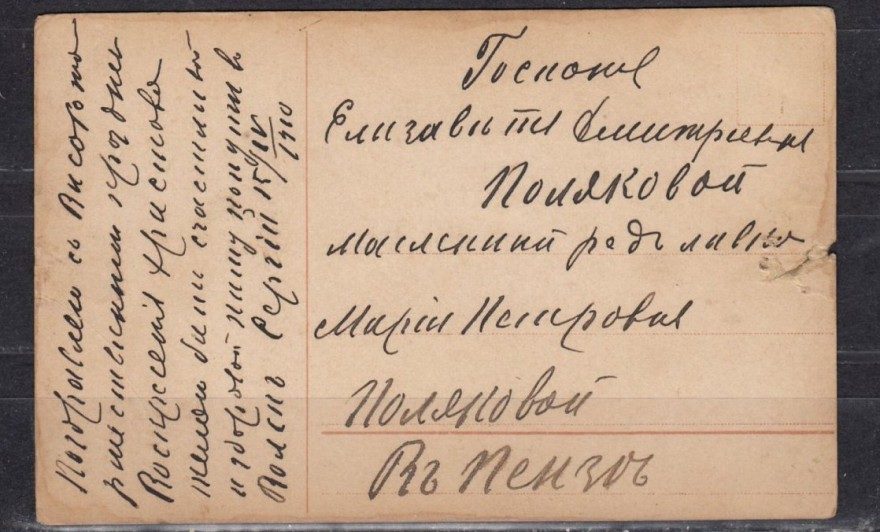 Поздравляю съ Высокото
ржественнымъ праздн
Воскресенія Христова
желаю быть счастливой
и здоровой пишу
Вольскъ Сергій 15/IV
1910
Госпоже
Елизавѣти Дмитревне
Поляковой
Масленный редъ лавка
Маріи Петровне
Поляковой
Въ Пензѣ